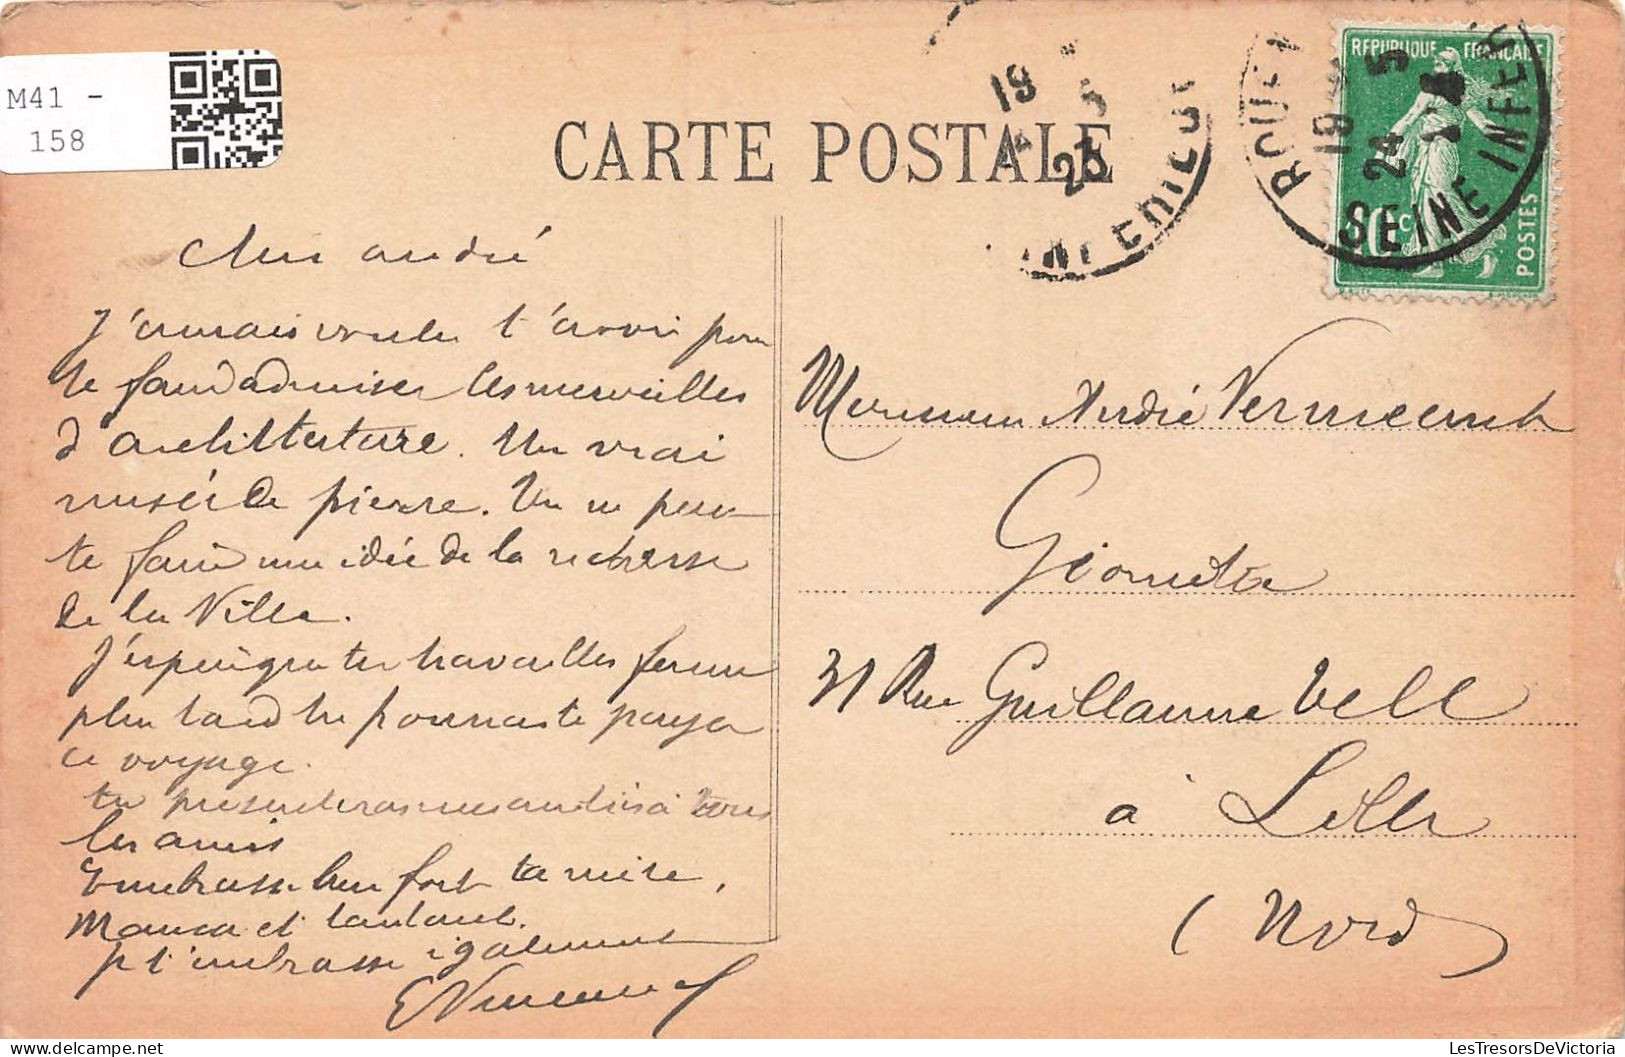 M41 -
158
CARTE POSTALE
19
5
23
INFÉRIEURE
ROUEN
19
24 5
SEINE INFER
REPUBLIQUE FRANÇAISE
10 c
POSTES
Cher andré
J'aurais voulu t'avoir pour
te faire admirer les merveilles
d'architecture. Un vrai
musée de pierre. On ne peut
te faire une idée de la richesse
de la Ville.
J'espère que tu travailles ferme
plus tard tu pourras te payer
ce voyage.
tu présenteras mes amitiés à tous
les amis
Embrasse bien fort ta mère,
et
je t'embrasse également
Monsieur André
Géomètre
31 Rue Guillaume Tell
à Lille
(Nord)
LesTresorsDeVictoria
delcampe.net